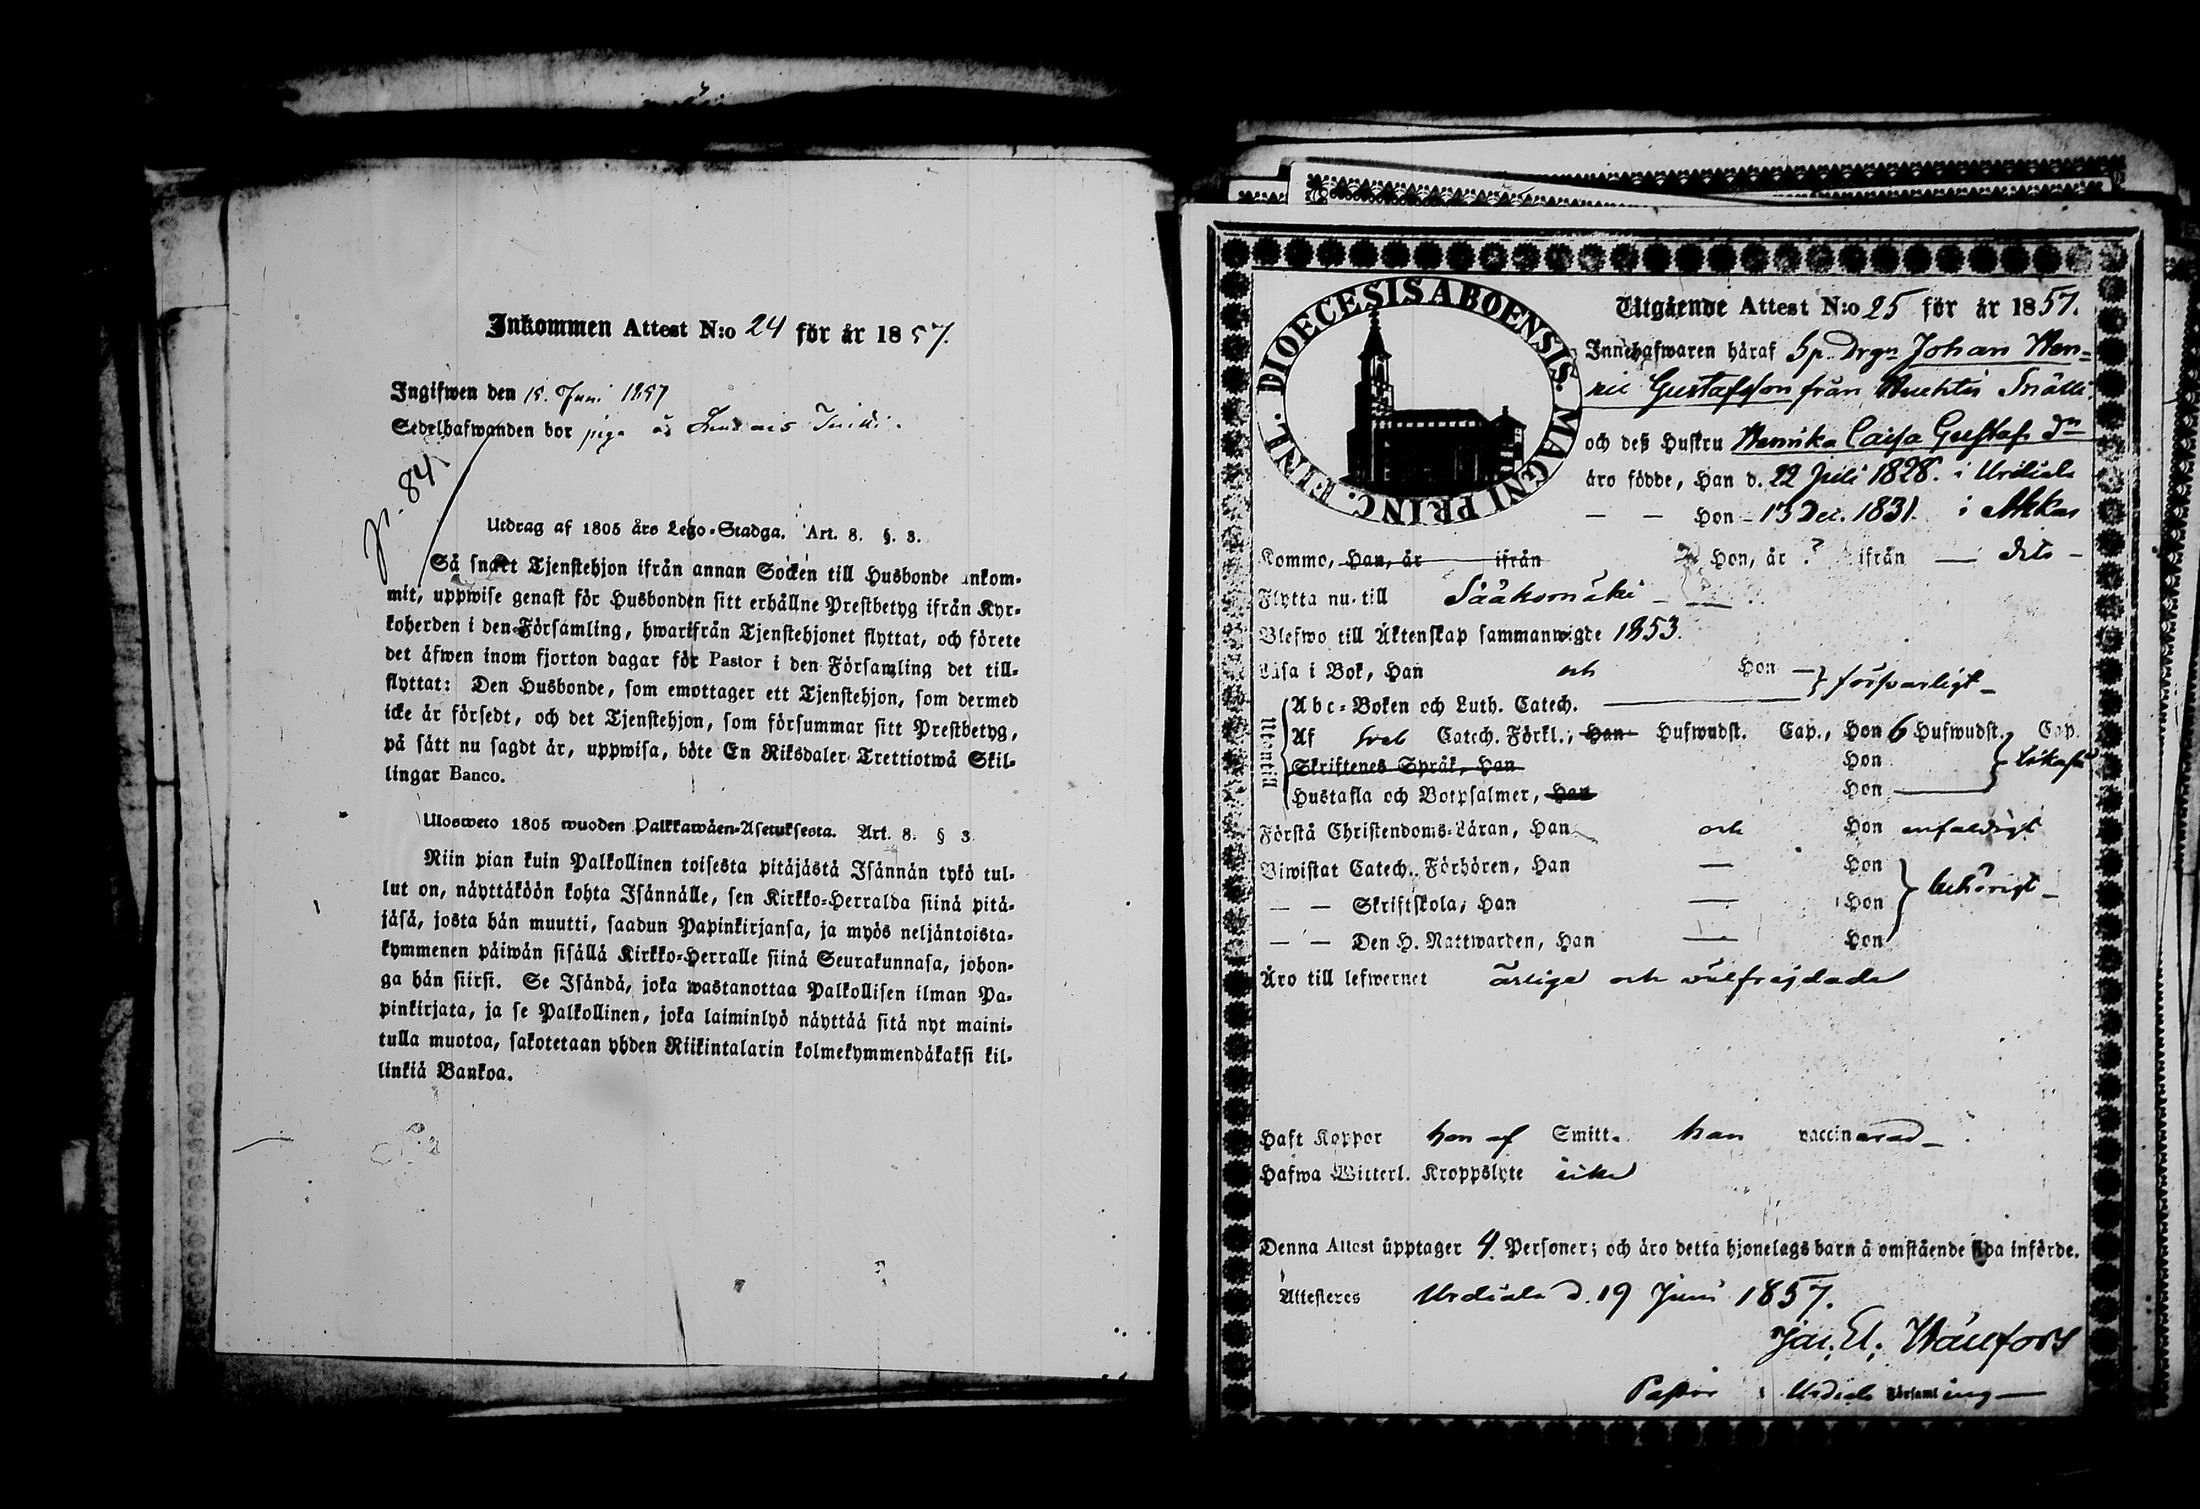 Inkommen Attest N:o 24 för år 1857.
Ingifwen den 15. Juni 1857
Sedelhafwanden bor piga
p. 84
Utdrag af 1805 års Lego-Stadga. Art. 8. §. 3.
Så snart Tjenstehjon ifrån annan Socken till Husbonde inkom-
mit, uppwise genast för Husbonden sitt erhållne Prestbetyg ifrån Kyr-
koherden i den Församling, hwarifrån Tjenstehjonet flyttat, och förete
det äfwen inom fjorton dagar för Pastor i den Församling det till-
flyttat: Den Husbonde, som emottager ett Tjenstehjon, som dermed
icke är försedt, och det Tjenstehjon, som försummar sitt Prestbetyg,
på sätt nu sagdt är, uppwisa, böte En Riksdaler Trettiotwå Skil-
lingar Banco.
Ulosweto 1805 wuoden Palkkawäen-Asetuksesta. Art. 8. § 3
Niin pian kuin Palkollinen toisesta pitäjästä Isännän tykö tul-
lut on, näyttäköön kohta Isännälle, sen Kirkko-Herralda siinä pitä-
jäsä, josta hän muutti, saadun Papinkirjansa, ja myös neljäntoista-
kymmenen päiwän sisällä Kirkko-Herralle siinä Seurakunnasa, johon-
ga hän siirsi. Se Isändä, joka wastanottaa Palkollisen ilman Pa-
pinkirjata, ja se Palkollinen, joka laiminlyö näyttää sitä nyt maini-
tulla muotoa, sakotetaan yhden Riikintalarin kolmekymmendäkaksi kil-
linkiä Bankoa.
DIOECESIS ABOENSIS. MAGNI PRINC. FINL.
Utgående Attest N:o 25 för år 1857.
Innehafwaren häraf Sp. Drgn Johan Hen-
ric Gustafsson från
och deß Hustru Hennika Caisa Gustafs dr
äro födde, Han d. 22 Juli 1828. i Urdiala
— — Hon - 13 Dec. 1831. i Akkas
Kommo, Han, år ifrån Hon, år ? ifrån — dito -
Flytta nu till Sääksmäki - —
Blefwo till Äktenskap sammanwigde 1853.
Läsa i Bok, Han och Hon — } försvarligt -
Utantill
Abc-Boken och Luth. Catech.
Af Sveb Catech. Förkl., Han Hufwudst. Cap., Hon 6 Hufwudst. Cap.
Skriftenes Språk, Han Hon } likaså
Hustafla och Botpsalmer, Han Hon
Förstå Christendoms-Läran, Han och Hon enfaldigt
Biwistat Catech. Förhören, Han — Hon
— — Skriftskola, Han — Hon } behörigt -
— — Den H. Nattwarden, Han — Hon
Äro till lefwernet ärlige och wälfrejdade
Haft Koppor hon af Smitt. han vaccinerad -
Hafwa Witterl. Kroppslyte icke
Denna Attest upptager 4. Personer; och äro detta hjonelags barn å omstående sida införde.
Attesteres Urdiala d. 19 Juni 1857.
Pastor i Urdiala Församling